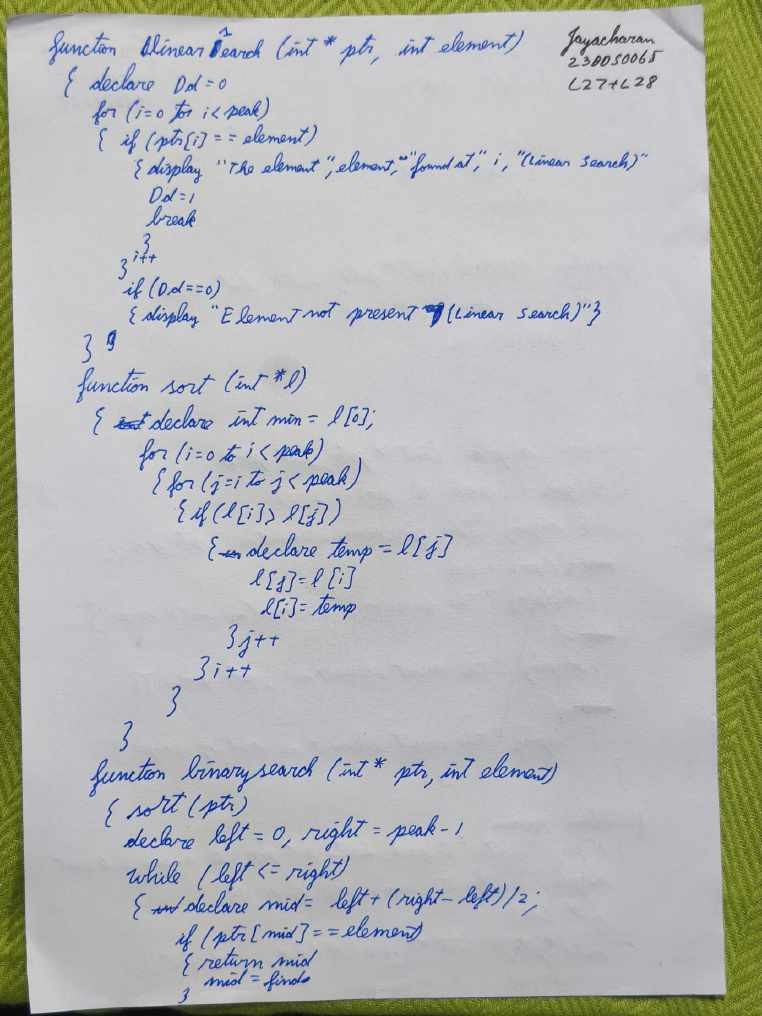 function linearSearch (int * ptr, int element)
Jayacharan
23BDS0065
L27+L28
{ declare Dd=0
for (i=0 to i<peak)
{ if (ptr[i] == element)
{ display "The element", element, "found at", i, "(Linear Search)"
Dd=1
break
}
i++
}
if (Dd==0)
{ display "Element not present (Linear Search)"}
}
function sort (int *l)
{ declare int min = l[0];
for (i=0 to i<peak)
{ for (j=i to j<peak)
{ if (l[i]> l[j])
{ declare temp = l[j]
l[j]=l[i]
l[i]=temp
}j++
}i++
}
}
function binarysearch (int * ptr, int element)
{ sort (ptr)
declare left = 0, right = peak-1
while (left <= right)
{ declare mid = left + (right-left)/2;
if (ptr[mid]==element)
{ return mid
mid = find
}